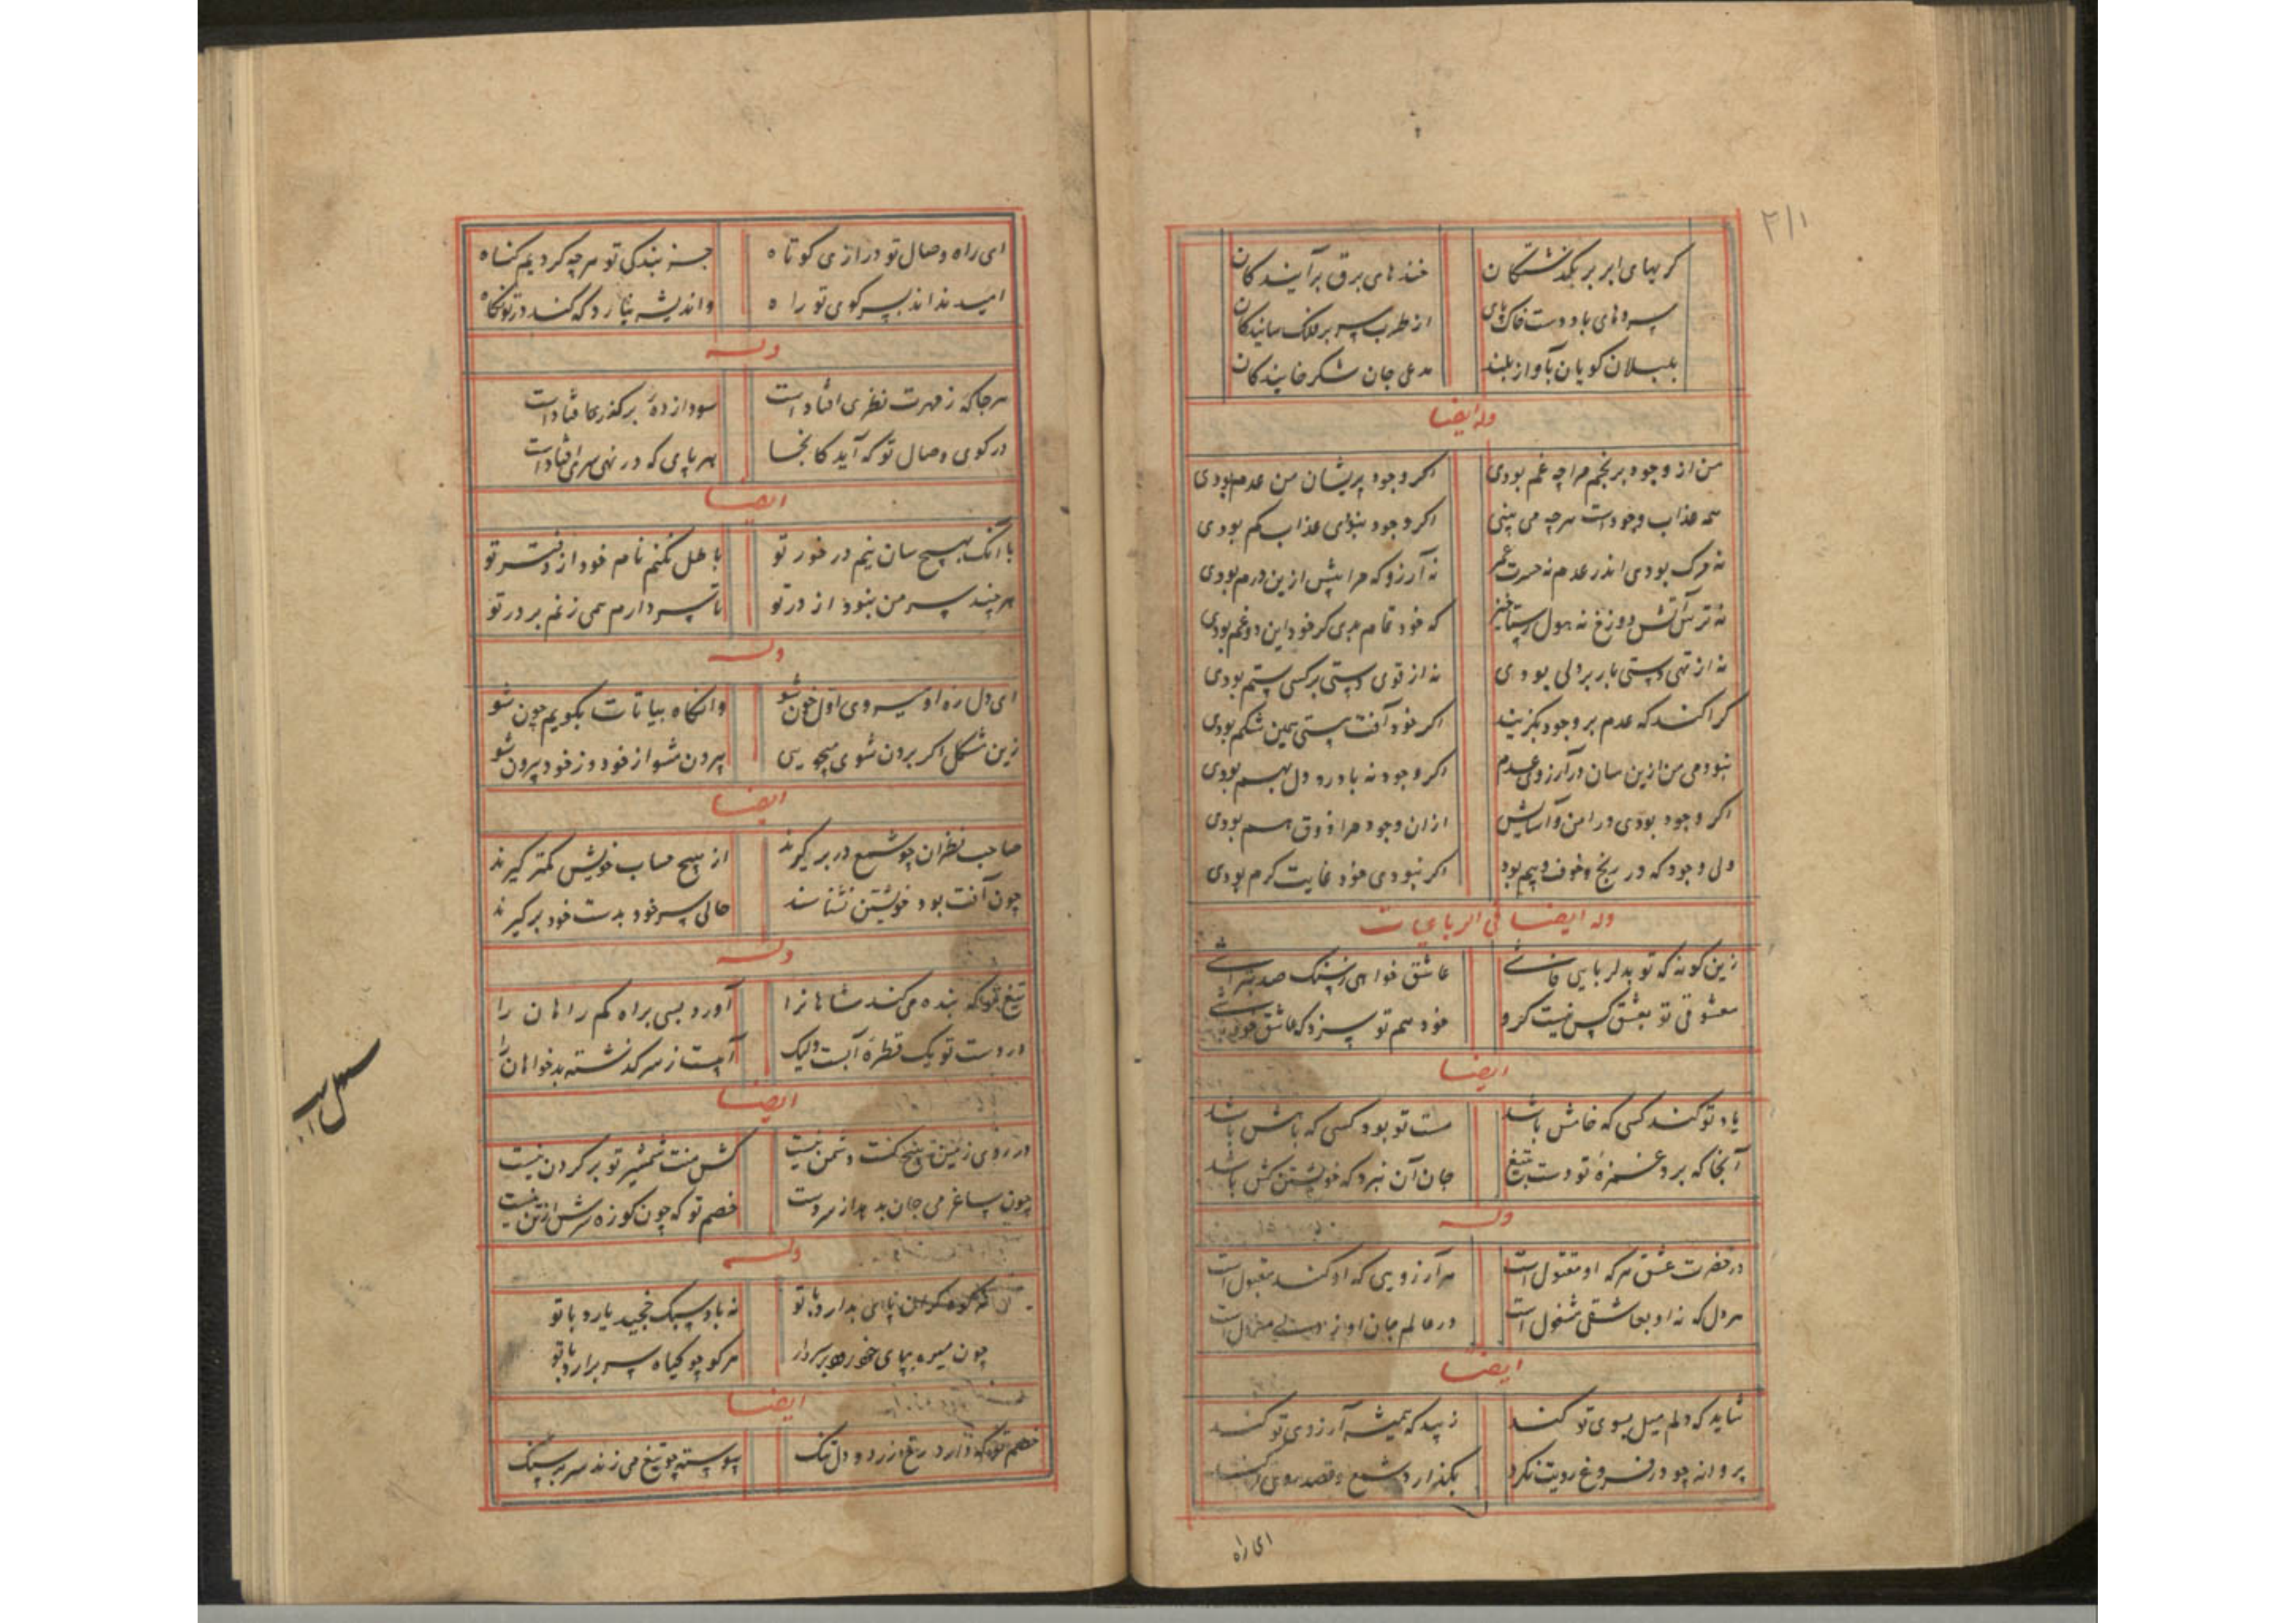 ۲۱۱
کریهای ابر بر بکذشتکان خندهای برق برآیندکان
سروهای باد دست خاک پای از طرب سر بر فلک سایندکان
بلبلان کویان بآواز بلند مدعی جان شکرخایندکان
وله ایضا
من از وجود برنجم مرا چه غم بودی اکر وجود پریشان من عدم بودی
همه عذاب وجودست هرچه می بینی اکر وجود نبودی عذاب کم بودی
نه مرک بودی اندر عدم نه حسرت عمر نه آرزو که مرا بیش ازین درم بودی
نه ترس آتش دوزخ نه هول رستاخیز که خود تمام بدی کر خود این دو غم بودی
نه از تهی دستی بار بر دلی بودی نه از قوی دستی بر کسی ستم بودی
کرا کند که عدم بر وجود بکزیند اکر خود آفت هستی همین شکم بودی
نبودمی من ازین سان در آرزوی عدم اکر وجود نه با درد دل بهم بودی
اکر وجود بودی در امن و آسایش از ان وجود مرا ذوق هم بودی
ولی وجود که در رنج و خوف و بیم بود اکر نبودی خود غایت کرم بودی
وله ایضا فی الرباعیات
زین کونه که تو بدلربایی فاشی عاشق خواهی ز سنک صد بتراشی
معشوقی تو بعشق کس نیست کرو خود هم تو سزد که عاشق خود باشی
ایضا
یاد تو کند کسی که خامش باشد مست تو بود کسی که باهش باشد
آنجا که برد غمزهٔ تو دست بتیغ جان آن نبرد که خویشتن کش باشد
وله
در حضرت عشق هرکه او مقتول است هر آرزویی که او کند مقبول است
هر دل که نه او بعاشقی مشغول است در عالم جان او از معزول است
ایضا
شاید که دلم میل بسوی تو کند زیبد که همیشه آرزوی تو کند
پروانه چو در فروغ رویت نکرد بکذارد شمع و قصد روی تو کند
ای راه
ای راه وصال تو درازی کوتاه جز بندکی تو هرچه کردیم کناه
امید نداند بسر کوی تو راه واندیشه نیارد که کند در تو نکاه
وله
هرجا که ز مهرت نظری افتادست سودازدهٔ بر کذری افتادست
در کوی وصال تو که آید کانجا بهر پای که در نهی سری افتادست
ایضا
با آنک بهیچ سان نیم در خور تو باطل نکنم نام خود از دفتر تو
هرچند سر من نبود از در تو تا سر دارم همی زنم بر در تو
وله
ای دل ره او سپروی اول خون شو وانکاه بیا تات بکویم چون شو
زین مشکل اکر برون شوی میجویی بیرون مشو از خود وز خود بیرون شو
ایضا
صاحب نظران چو شمع در بر کیرند از هیچ حساب خویش کمتر کیرند
چون آفت بود خویشتن نشناسند حالی سر خود بدست خود برکیرند
وله
تیغ تو که بنده میکند شاهانرا آورد بسی براه کم راهان را
در دست تو یک قطره آبست ولیک آبیست ز سر کذشته بدخواهان را
ایضا
در روی زمین تو هیچکت دشمن نیست کش منت شمشیر تو بر کردن نیست
چون ساغر می جان بدهد از سر دست خصم تو که چون کوزه سرش از تن نیست
وله
که کوه کران پای بدارد با تو نه باد سبک خجید یارد با تو
چون میوه بپای بر سر دار هرکو چو کیاه سر برارد با تو
ایضا
خصم تو که دارد رخ زرد و دل تنک پیوسته چو تیغ می زند سر بر سنک